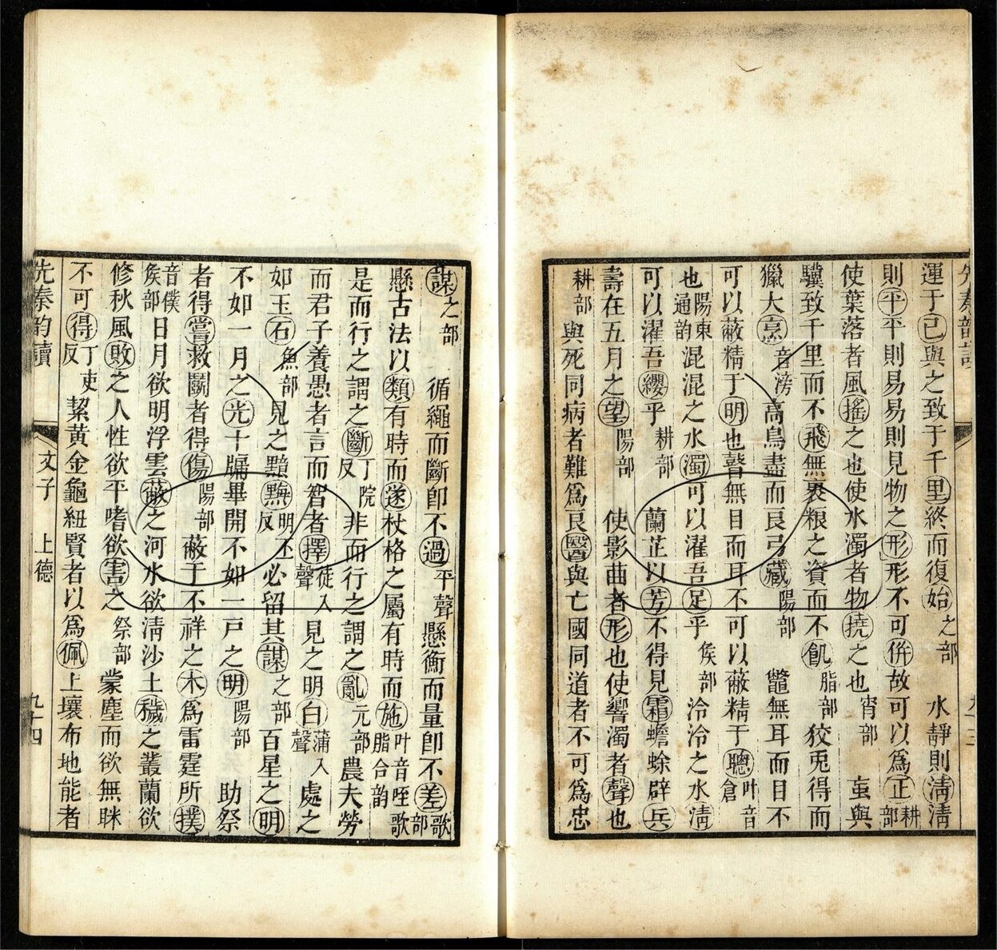 運于己與之致于千里終而復始之部　水靜則淸淸
則平平則易易則見物之形形不可併故可以爲正耕部
使葉落者風搖之也使水濁者物撓之也宵部　䖝與
驥致千里而不飛無裹粮之資而不飢脂部狡兎得而
獵犬烹音滂高鳥盡而良弓藏陽部　鼈無耳而目不
可以蔽精于明也瞽無目而耳不可以蔽精于聰叶音倉
也陽東通韵混混之水濁可以濯吾足乎矦部泠泠之水淸
可以濯吾纓乎耕部　蘭芷以芳不得見霜蟾蜍辟兵
壽在五月之望陽部　使影曲者形也使響濁者聲也
耕部　與死同病者難爲良醫與亡國同道者不可為忠
謀之部　循繩而斷卽不過平聲懸衡而量卽不差歌部
懸古法以類有時而遂杖格之屬有時而施叶音㖞歌脂合韵
是而行之謂之斷丁院反非而行之謂之亂元部農夫勞
而君子養愚者言而智者擇徒入聲見之明白蒲入聲處之
如玉石魚部見之黯黣明丕反必留其謀之部百星之明
不如一月之光十牖畢開不如一戶之明陽部　助祭
者得嘗救鬭者得傷陽部　蔽于不祥之木爲雷霆所撲
音僕矦部日月欲明浮雲蔽之河水欲淸沙土穢之叢蘭欲
修秋風敗之人性欲平嗜欲害之祭部　蒙塵而欲無眯
不可得丁吏反　絜黃金龜紐賢者以爲佩上壤布地能者
先秦韵讀　文子　上德　九十四